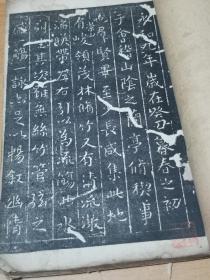 永和九年歲在癸丑暮春之初
于會稽山陰之蘭亭脩稧事
也群賢畢至少長咸集此地
有崇山峻領茂林脩竹又有清流激
湍暎帶左右引以為流觴曲水
列坐其次雖無絲竹管弦之
盛一觴一詠亦足以暢敘幽情